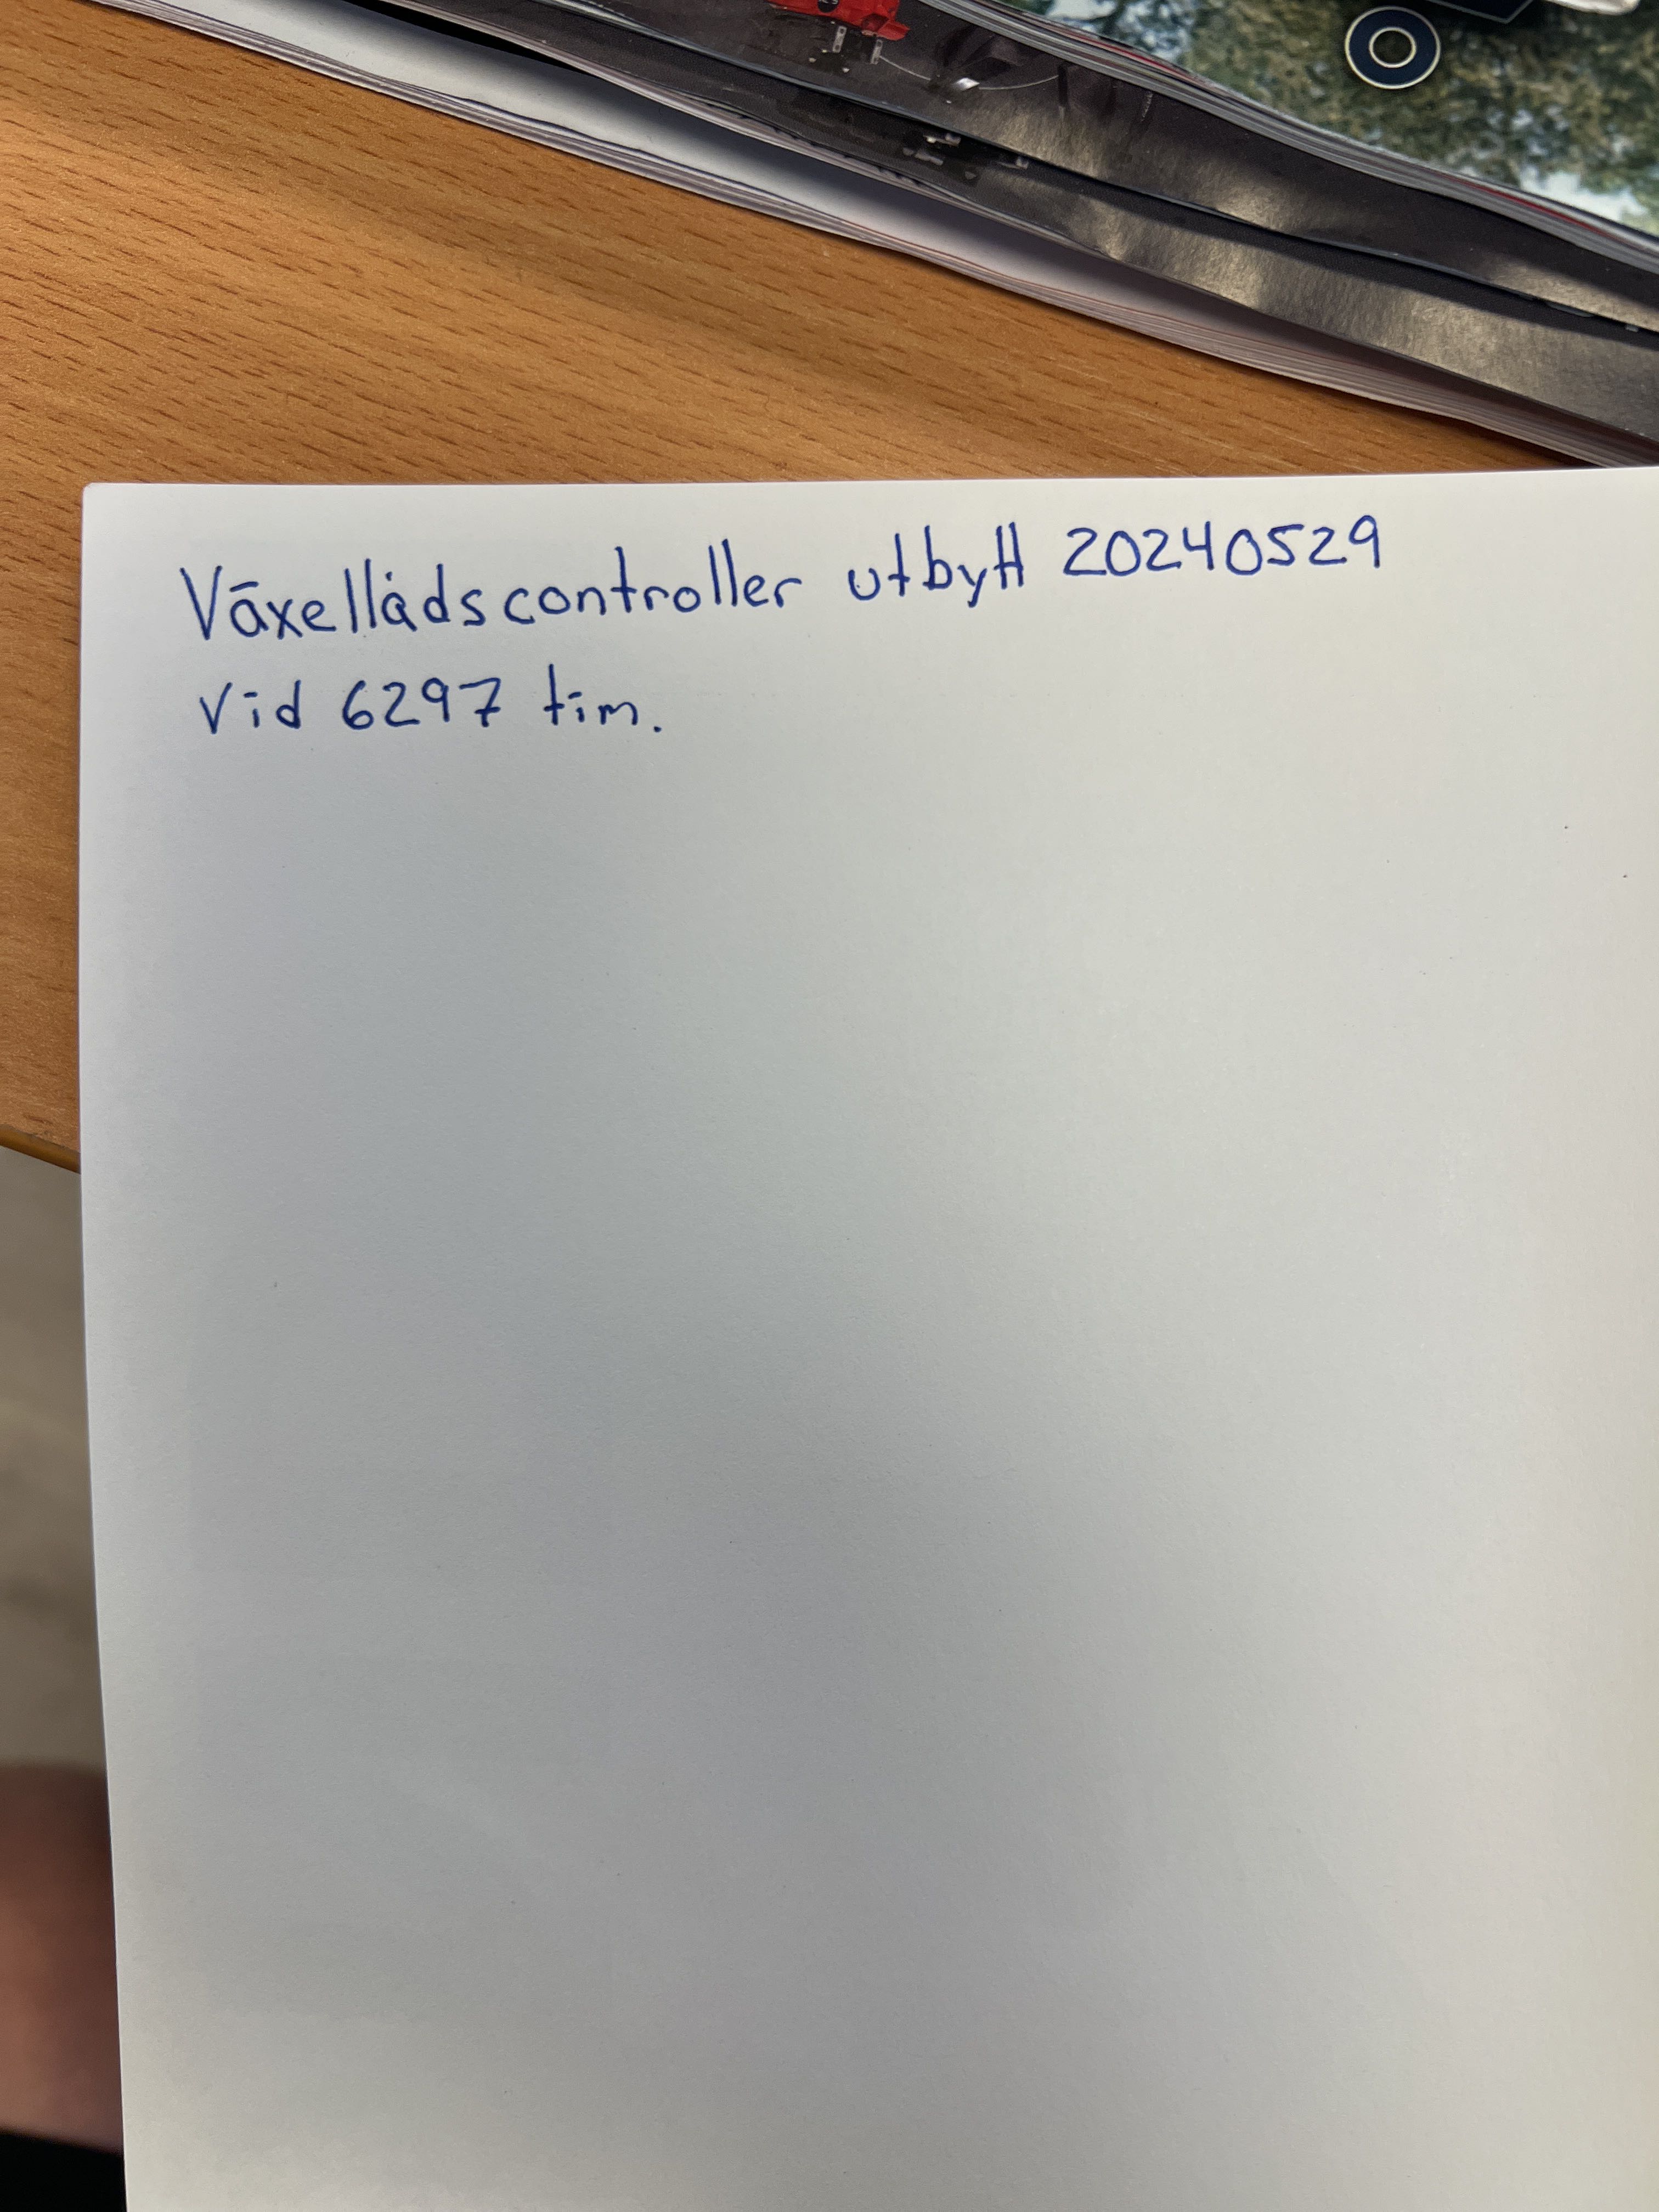 Växellådscontroller utbytt 20240529
vid 6297 tim.